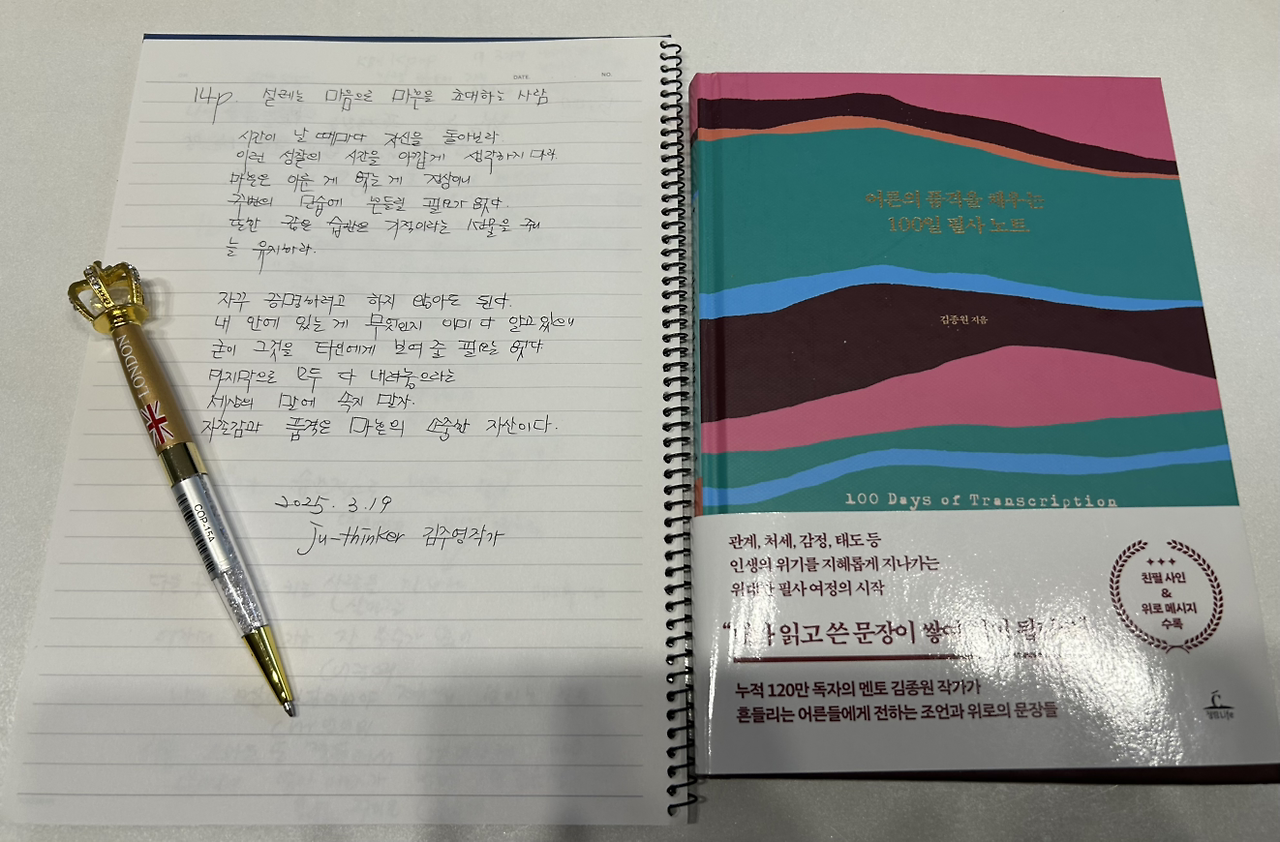 DATE NO.
14p. 설레는 마음으로 마흔을 초대하는 사람
시간이 날 때마다 자신을 돌아보라
이런 성찰의 시간을 아깝게 생각하지 마라.
마흔은 이룬 게 없는 게 정상이니
주변의 모습에 흔들릴 필요가 없다.
또한 좋은 습관은 기적이라는 선물을 주니
늘 유지하라.
자꾸 증명하려고 하지 않아도 된다.
내 안에 있는 게 무엇인지 이미 다 알고 있으니
굳이 그것을 타인에게 보여 줄 필요는 없다.
마지막으로 모두 다 내려놓으라는
세상의 말에 속지 말자.
자존감과 품격은 마흔의 소중한 자산이다.
2025. 3. 19
Ju-thinker 김주영작가
LONDON
COP-15A
어른의 품격을 채우는
100일 필사 노트
김종원 지음
100 Days of Transcription
관계, 처세, 감정, 태도 등
인생의 위기를 지혜롭게 지나가는
위대한 필사 여정의 시작
읽고 쓴 문장이
누적 120만 독자의 멘토 김종원 작가가
흔들리는 어른들에게 전하는 조언과 위로의 문장들
친필 사인
&
위로 메시지
수록
청림Life